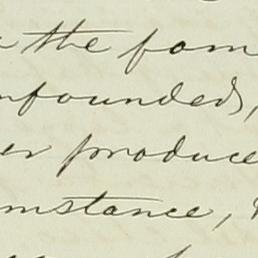 the fam
nfounded,
er produce
mstance,